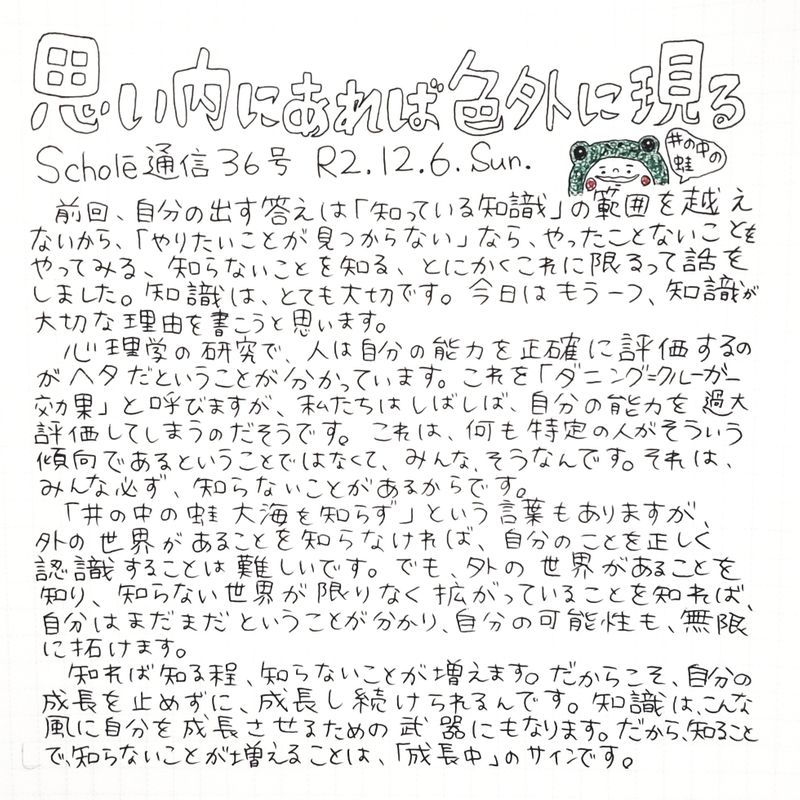 思い内にあれば色外に現る
Scholē通信36号 R2.12.6.Sun.
井の中の
蛙
前回、自分の出す答えは「知っている知識」の範囲を越え
ないから、「やりたいことが見つからない」なら、やったことないことを
やってみる、知らないことを知る、とにかくこれに限るって話を
しました。知識は、とても大切です。今日はもう一つ、知識が
大切な理由を書こうと思います。
心理学の研究で、人は自分の能力を正確に評価するの
がヘタだということが分かっています。これを「ダニング=クルーガー
効果」と呼びますが、私たちはしばしば、自分の能力を過大
評価してしまうのだそうです。これは、何も特定の人がそういう
傾向であるということではなくて、みんな、そうなんです。それは、
みんな必ず、知らないことがあるからです。
「井の中の蛙大海を知らず」という言葉もありますが、
外の世界があることを知らなければ、自分のことを正しく
認識することは難しいです。でも、外の世界があることを
知り、知らない世界が限りなく拡がっていることを知れば、
自分はまだまだということが分かり、自分の可能性も、無限
に拓けます。
知れば知る程、知らないことが増えます。だからこそ、自分の
成長を止めずに、成長し続けられるんです。知識は、こんな
風に自分を成長させるための武器にもなります。だから、知ること
で、知らないことが増えることは、「成長中」のサインです。